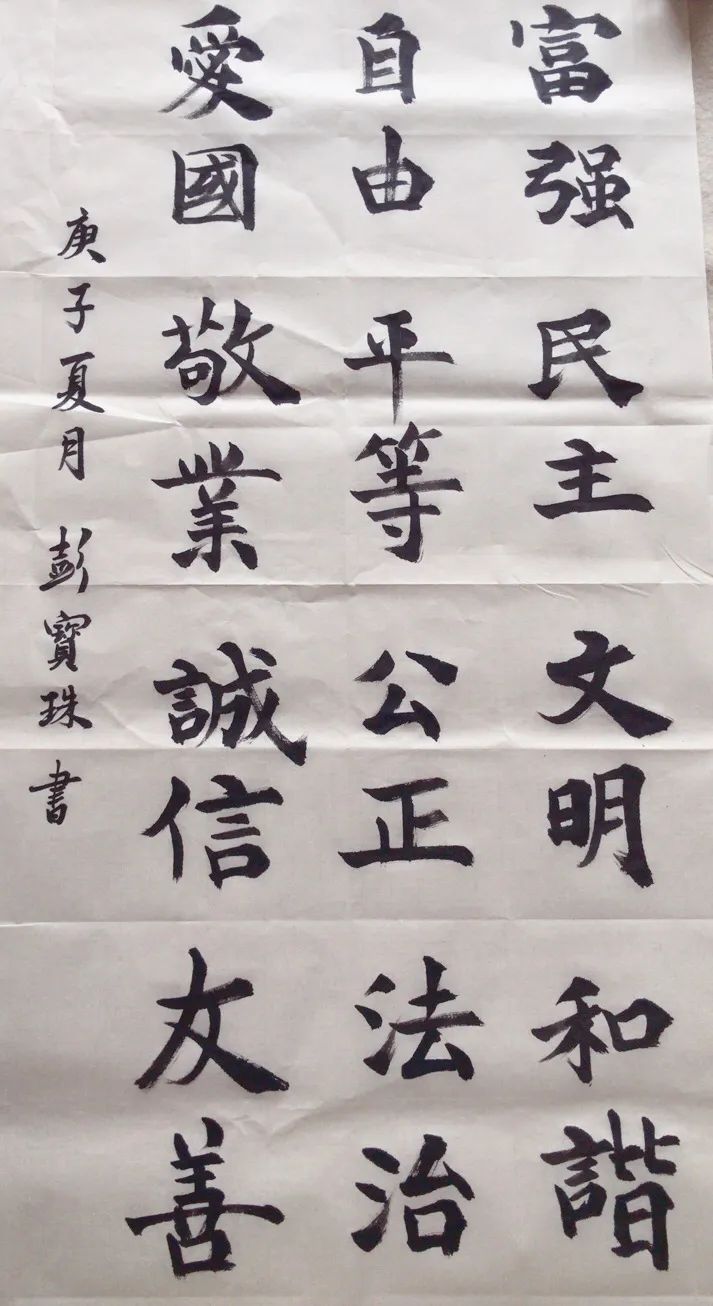 富强 民主 文明 和諧
自由 平等 公正 法治
愛國 敬業 誠信 友善
庚子夏月 彭寶珠 書